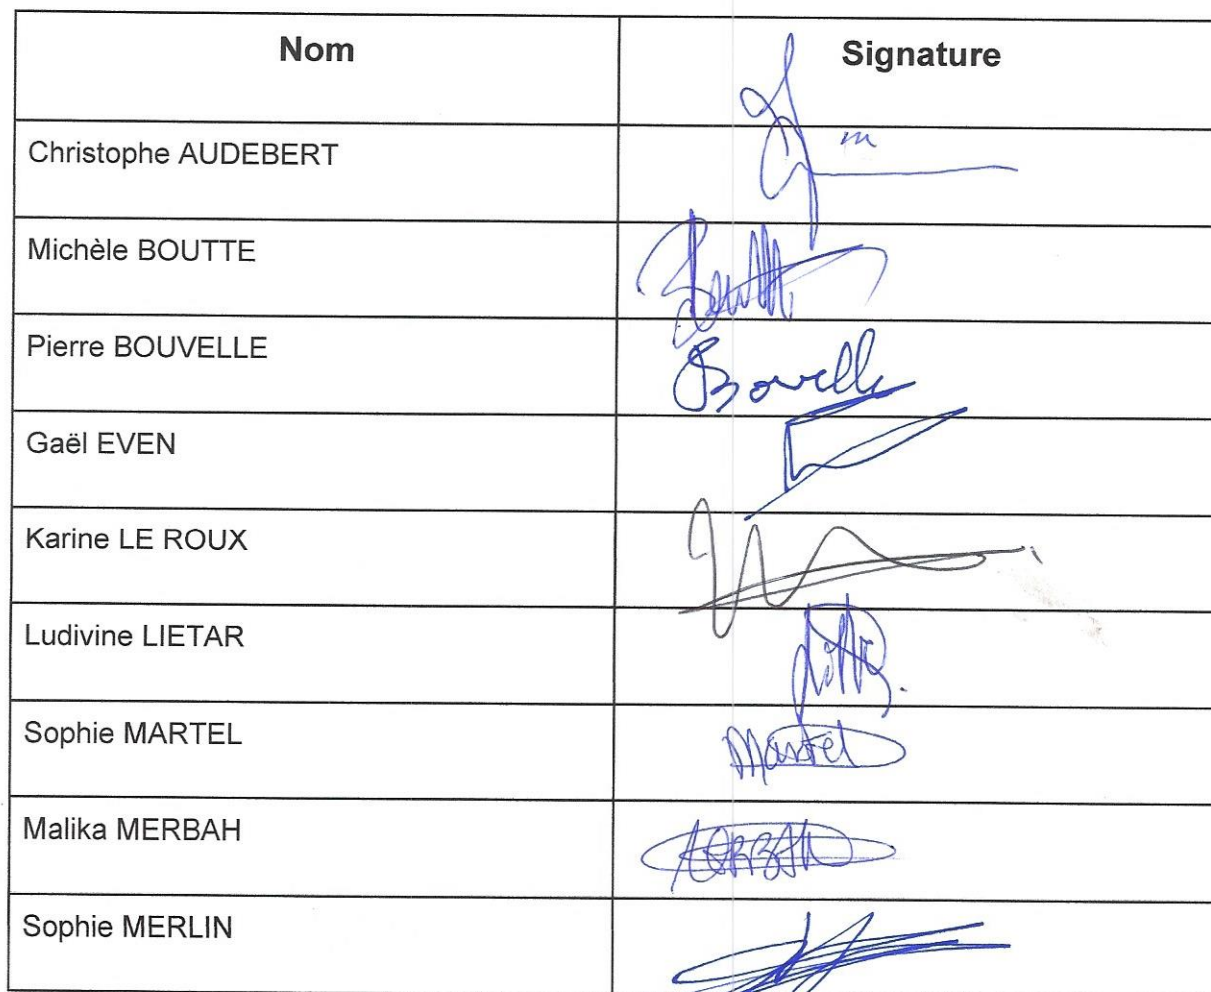 Nom Signature
Christophe AUDEBERT
Michèle BOUTTE
Pierre BOUVELLE Bouvelle
Gaël EVEN
Karine LE ROUX
Ludivine LIETAR
Sophie MARTEL Martel
Malika MERBAH MERBAH
Sophie MERLIN